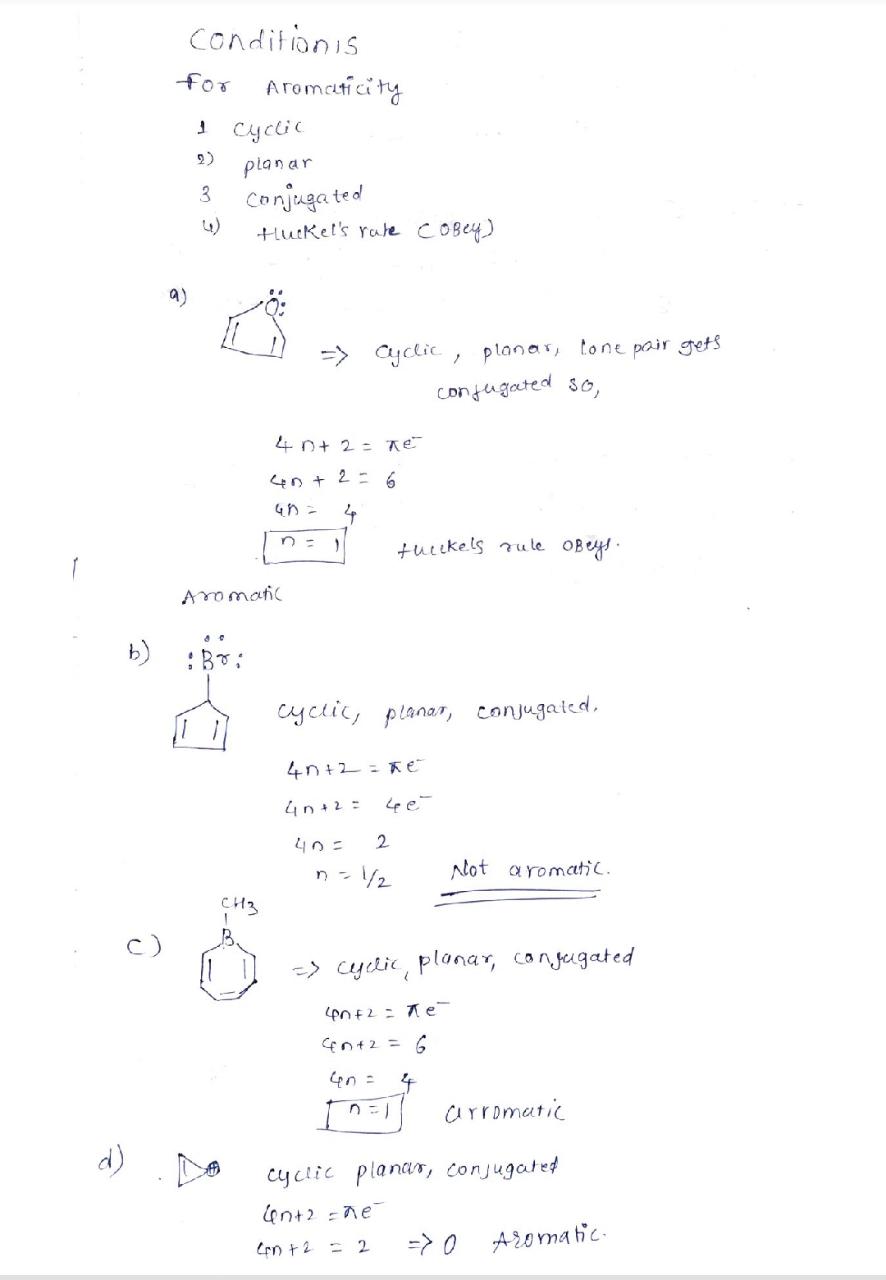 Conditionis
For Aromaticity
1 Cyclic
2) planar
3 Conjugated
4) Huckel's rule (OBey)
a)
:Ö:
=> cyclic, planar, lone pair gets
conjugated so,
4n+2 = πe⁻
4n + 2 = 6
4n = 4
n = 1 Huckels rule OBeys.
Aromatic
b) :Br:
cyclic, planar, conjugated.
4n+2 = πe⁻
4n+2 = 4e⁻
4n = 2
n = 1/2 Not aromatic.
CH3
c) B
=> cyclic, planar, conjugated
4n+2 = πe⁻
4n+2 = 6
4n = 4
n=1 arromatic
d) ⊕ cyclic planar, conjugated
4n+2 = πe⁻
4n+2 = 2 => 0 Aromatic.